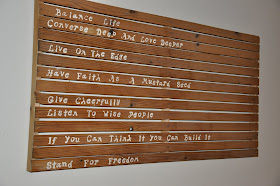 Balance Life
Converse Deep And Love Deeper
Live On The Edge
Have Faith As A Mustard Seed
Give Cheerfully
Listen To Wise People
If You Can Think It You Can Build It
Stand For Freedom